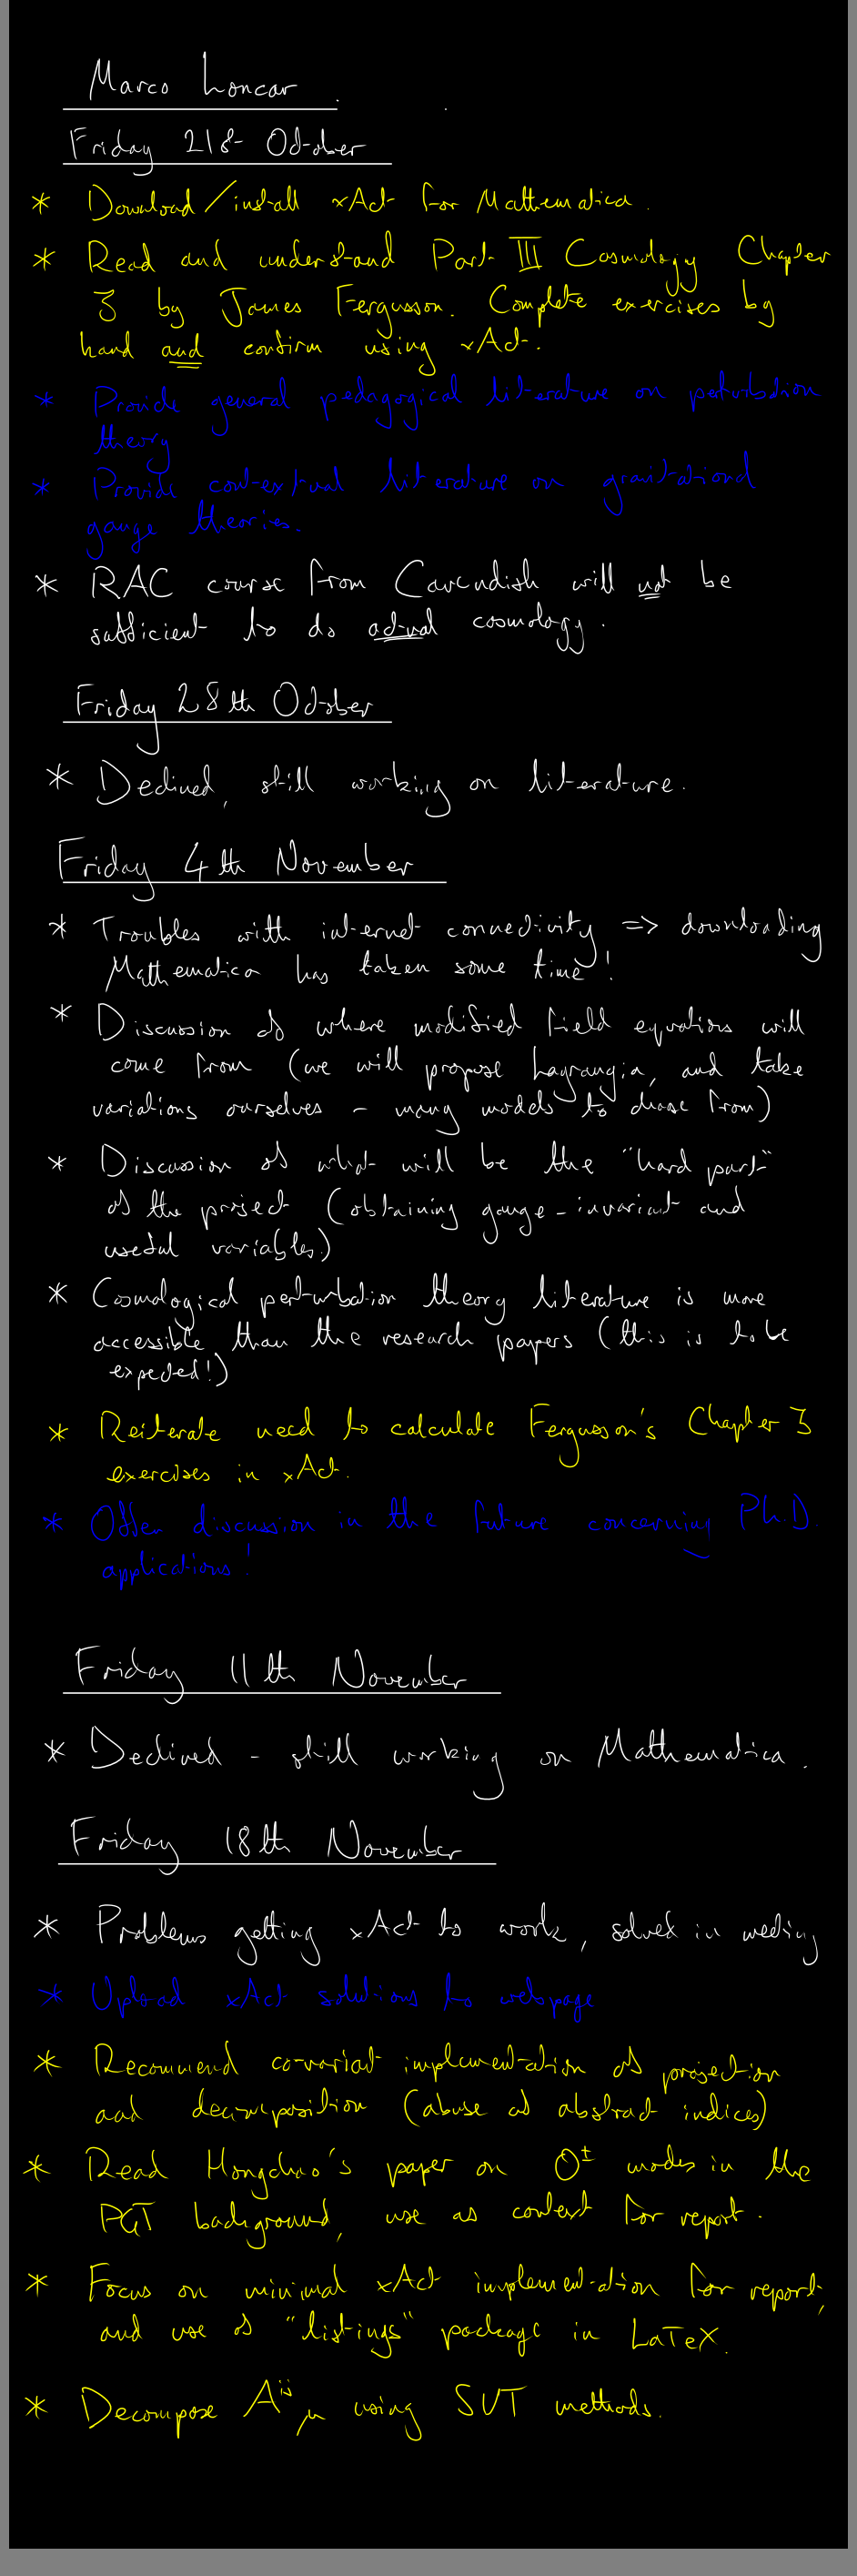 Marco Loncar
Friday 21st October
* Download/install xAct for Mathematica.
* Read and understand Part III Cosmology Chapter
3 by James Fergusson. Complete exercises by
hand and confirm using xAct.
* Provide general pedagogical literature on perturbation
theory
* Provide contextual literature on gravitational
gauge theories.
* RAC course from Cavendish will not be
sufficient to do actual cosmology.
Friday 28th October
* Declined, still working on literature.
Friday 4th November
* Troubles with internet connectivity => downloading
Mathematica has taken some time!
* Discussion of where modified field equations will
come from (we will propose Lagrangia, and take
variations ourselves - many models to choose from)
* Discussion of what will be the "hard part"
of the project (obtaining gauge-invariant and
useful variables)
* Cosmological perturbation theory literature is more
accessible than the research papers (this is to be
expected!)
* Reiterate need to calculate Fergusson's Chapter 3
exercises in xAct.
* Offer discussion in the future concerning Ph.D.
applications!
Friday 11th November
* Declined - still working on Mathematica.
Friday 18th November
* Problems getting xAct to work, solved in meeting
* Upload xAct solutions to webpage
* Recommend co-variat implementation of projection
and decomposition (abuse of abstract indices)
* Read Hongchao's paper on 0± modes in the
PGT background, use as context for report.
* Focus on minimal xAct implementation for report,
and use of "listings" package in LaTeX.
* Decompose A^{ij}_μ using SVT methods.